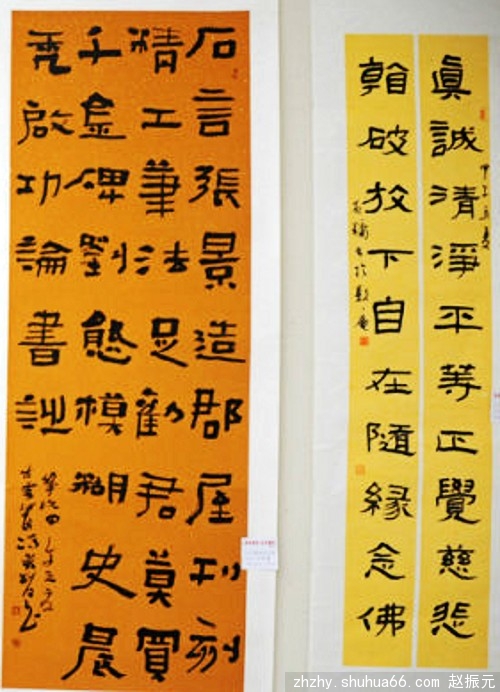 眞誠清淨平等正覺慈悲
甲午立夏
看破放下自在隨緣念佛
石言張景造郡屋刊刻
精工筆法足勸君莫買
千金碑劉熊模糊史晨
禿啟功論書詩
zhzhy.shuhua66.com 赵振元